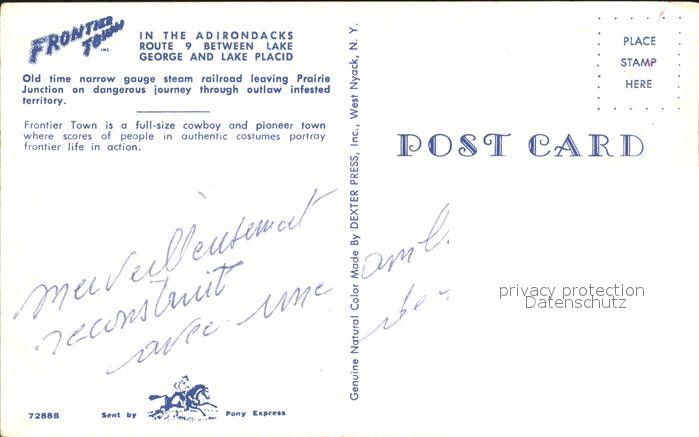 FRONTIER TOWN INC.
IN THE ADIRONDACKS
ROUTE 9 BETWEEN LAKE
GEORGE AND LAKE PLACID
Old time narrow gauge steam railroad leaving Prairie
Junction on dangerous journey through outlaw infested
territory.
Frontier Town is a full-size cowboy and pioneer town
where scores of people in authentic costumes portray
frontier life in action.
merveilleusement
reconstruit
avec une
7288B
Sent by Pony Express
Genuine Natural Color Made By DEXTER PRESS, Inc., West Nyack, N. Y.
PLACE
STAMP
HERE
POST CARD
privacy protection
Datenschutz